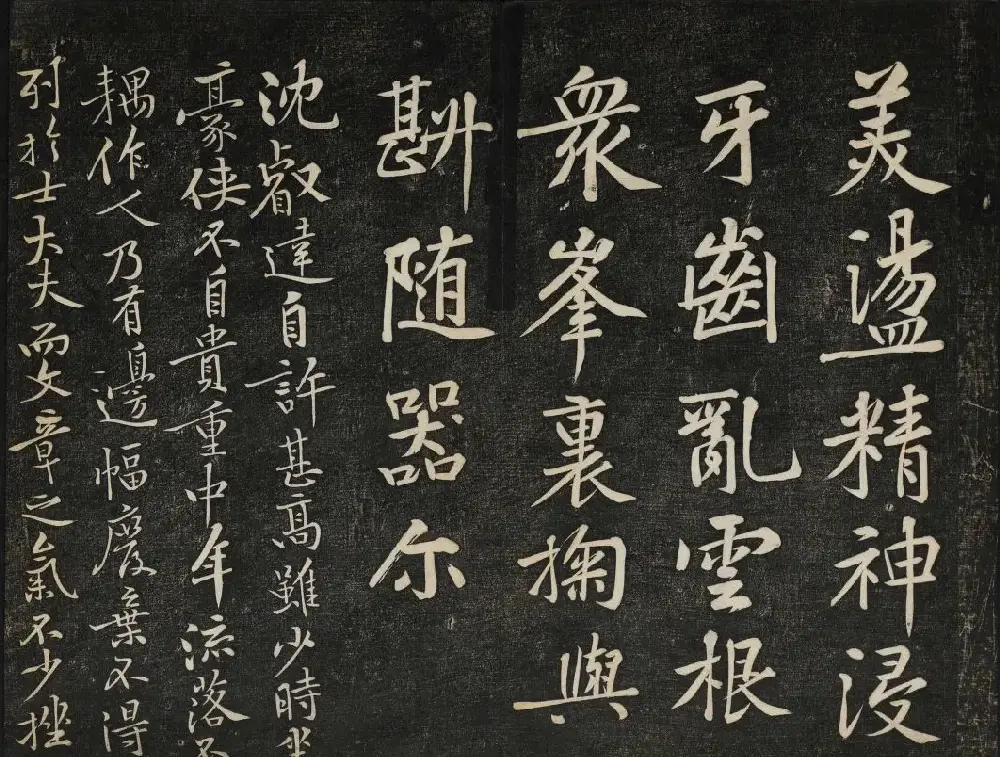 美盪精神浸
牙齒亂雲根
衆峯裏掬與
斟随器尒
沈叡達自許甚高雖少時坐
豪侠不自貴重中年流落不
耦作人乃有邊幅廢棄不得
列於士大夫而文章之氣不少挫